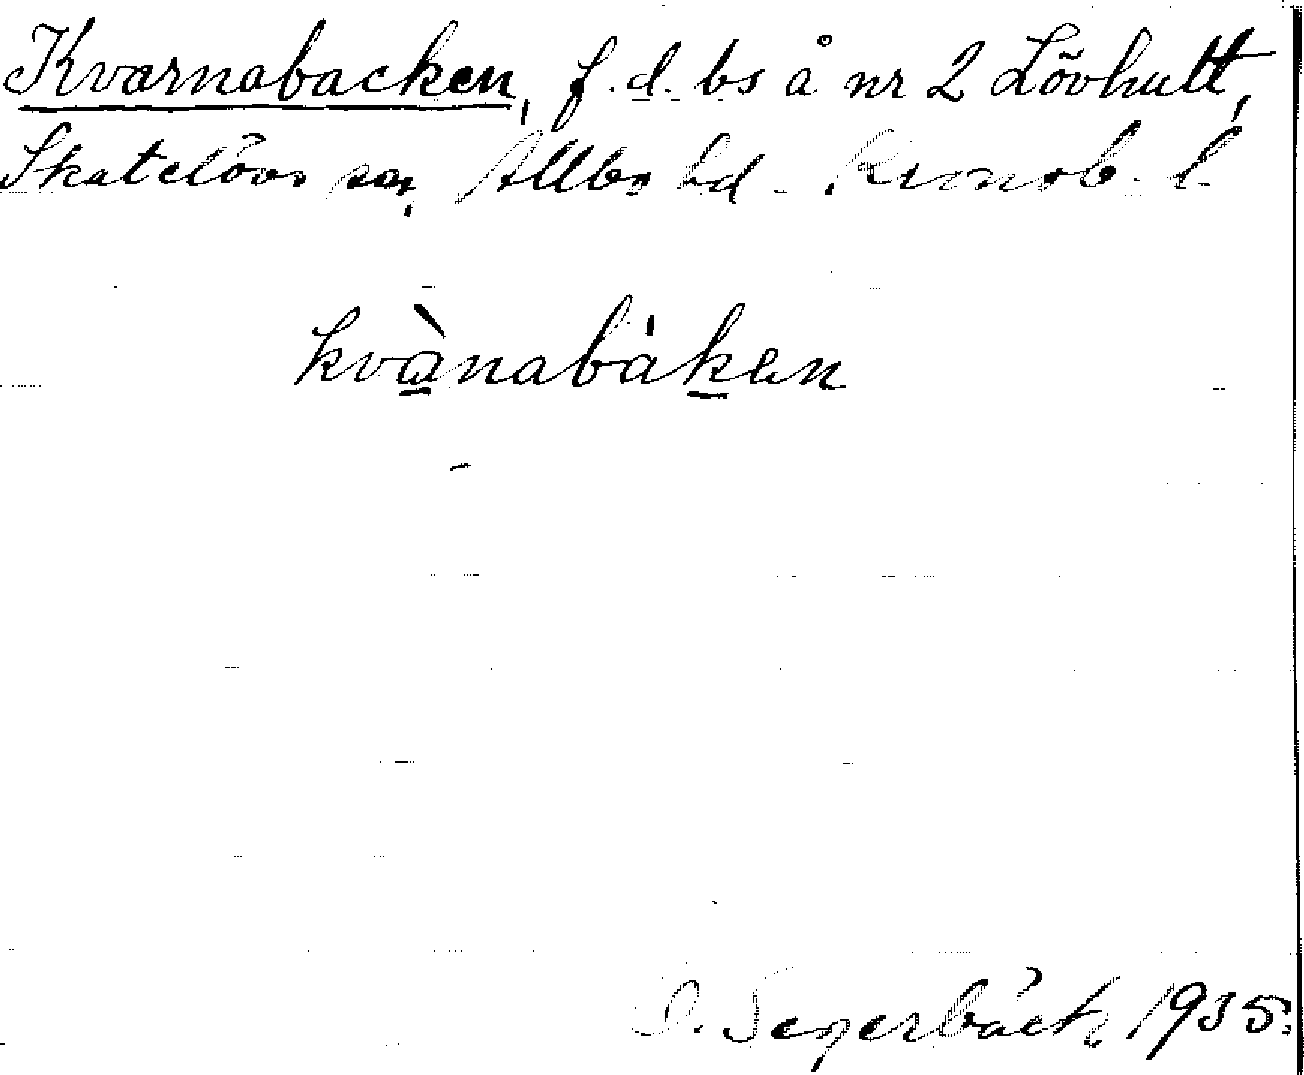 Kvarnabacken, f.d. bs å nr 2 Lövhult,
Skatelövs sn, Allbo hd. Kronob. l.
kvànabàken
O. Segerbäck, 1935.